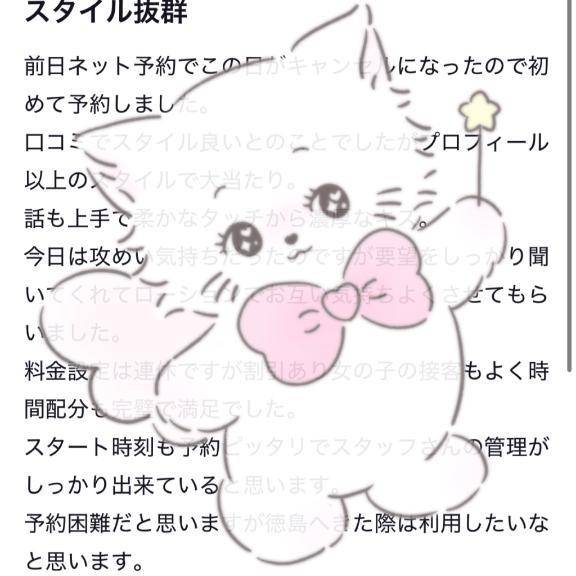 スタイル抜群
前日ネット予約でこの日がキャンセルになったので初
めて予約しました。
口コミでスタイル良いとのことでしたがプロフィール
以上のスタイルで大当たり。
話も上手で柔かなタッチから濃厚なキス。
今日は攻めい気持ちだったのですが要望をしっかり聞
いてくれてローションでお互い気持ちよくさせてもら
いました。
料金設定は連休ですが割引あり女の子の接客もよく時
間配分も完璧で満足でした。
スタート時刻も予約ピッタリでスタッフさんの管理が
しっかり出来ていると思います。
予約困難だと思いますが徳島へきた際は利用したいな
と思います。